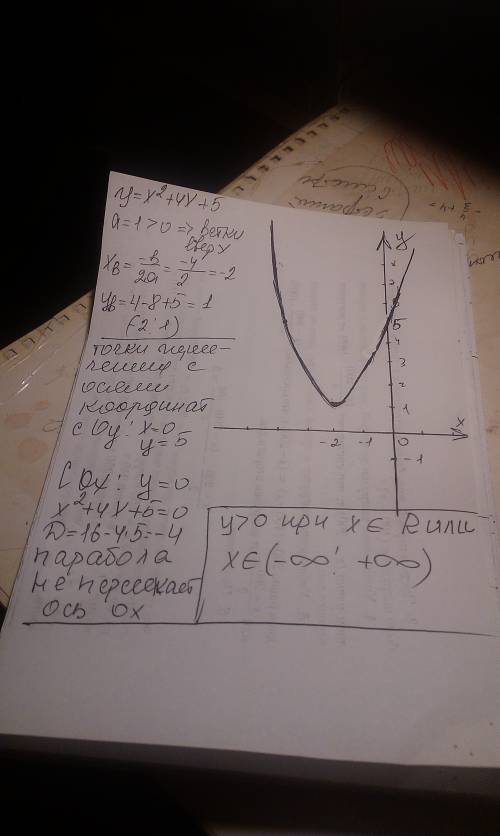 y=x²+4x+5
a=1>0 => ветки
вверх
xв=-в/2a=-4/2=-2
yв=4-8+5=1
(-2; 1)
точки пересе-
чения с
осями
координат
с Oy: x=0
y=5
С Ox: y=0
x²+4x+5=0
D=16-4·5=-4
парабола
не пересекает
ось ox
y>0 при x∈ R или
x∈(-∞; +∞)
y
5
4
3
2
1
x
-2 -1 0
-1